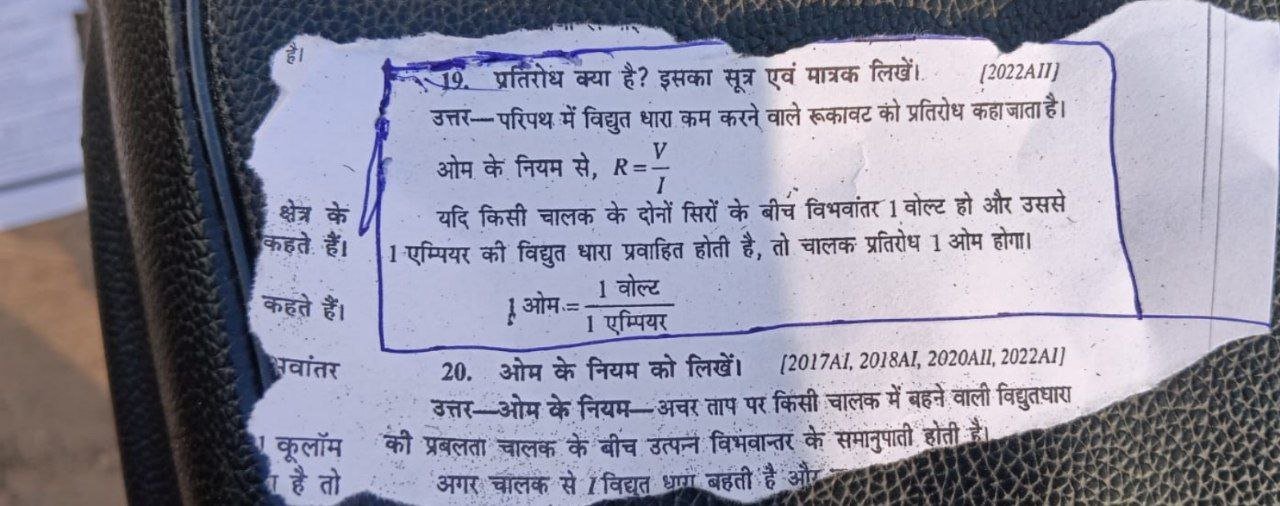 है।
19. प्रतिरोध क्या है? इसका सूत्र एवं मात्रक लिखें। [2022AII]
उत्तर—परिपथ में विद्युत धारा कम करने वाले रूकावट को प्रतिरोध कहा जाता है।
ओम के नियम से, R = V/I
यदि किसी चालक के दोनों सिरों के बीच विभवांतर 1 वोल्ट हो और उससे
1 एम्पियर की विद्युत धारा प्रवाहित होती है, तो चालक प्रतिरोध 1 ओम होगा।
1 ओम = 1 वोल्ट / 1 एम्पियर
20. ओम के नियम को लिखें। [2017AI, 2018AI, 2020AII, 2022AI]
उत्तर—ओम के नियम—अचर ताप पर किसी चालक में बहने वाली विद्युतधारा
की प्रबलता चालक के बीच उत्पन्न विभवान्तर के समानुपाती होती है।
अगर चालक से I विद्युत धारा बहती है और
क्षेत्र के
कहते हैं।
कहते हैं।
भवांतर
1 कूलॉम
है तो